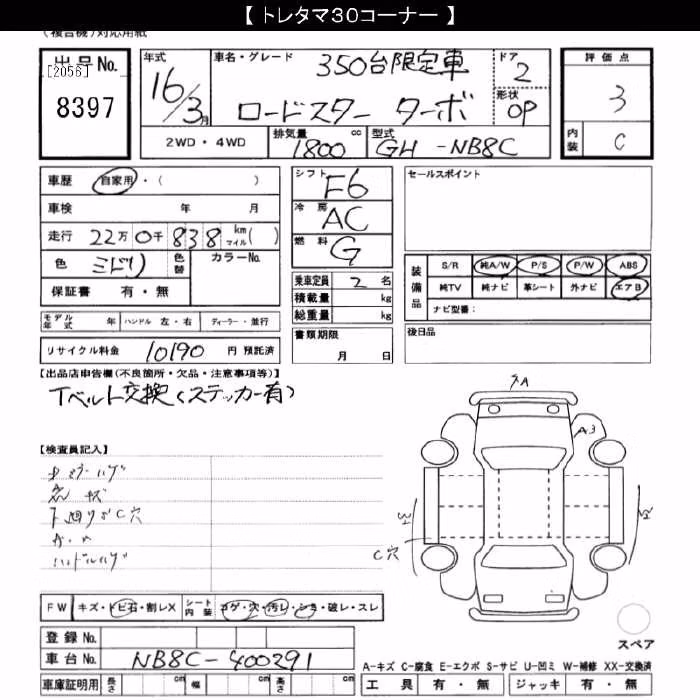 【 トレタマ30コーナー 】
(複合機)対応用紙
出品No.
[2056]
8397
年式
16/3月
車名・グレード
350台限定車
ロードスター ターボ
ドア
2
形状
OP
評価点
3
内装
C
2WD・4WD
排気量
1800 cc
型式
GH-NB8C
車歴 自家用・( )
車検 年 月
走行 22万0千838 km マイル( )
色 ミドリ 色替
カラーNo.
保証書 有・無
シフト
F6
冷房
AC
燃料
G
乗車定員 2 名
積載量 kg
総重量 kg
書類期限
月 日
セールスポイント
装備品
S/R 純A/W P/S P/W ABS
純TV 純ナビ 革シート 外ナビ エアB
ナビ型番:
後日品
モデル年式 年 ハンドル 左・右 ディーラー・並行
リサイクル料金 10190 円 預託済
【出品店申告欄(不良箇所・欠品・注意事項等)】
Tベルト交換(ステッカー有)
【検査員記入】
下廻りサC穴
ハンドルハゲ
A
A3
C穴
FW キズ・トビ石・割レX
シート内装 コゲ・穴・汚レ・シミ・破レ・スレ
登録No.
車台No. NB8C-400291
車庫証明用 長さ cm 幅 cm 高さ cm
スペア
A-キズ C-腐食 E-エクボ S-サビ U-凹ミ W-補修 XX-交換済
工具 有・無 ジャッキ 有・無